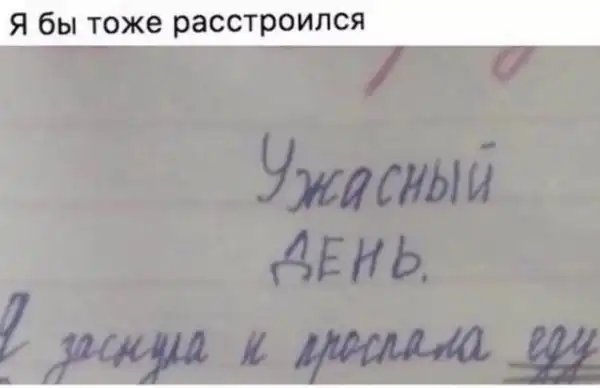 Я бы тоже расстроился
Ужасный
ДЕНЬ.
Я заснула и проспала еду